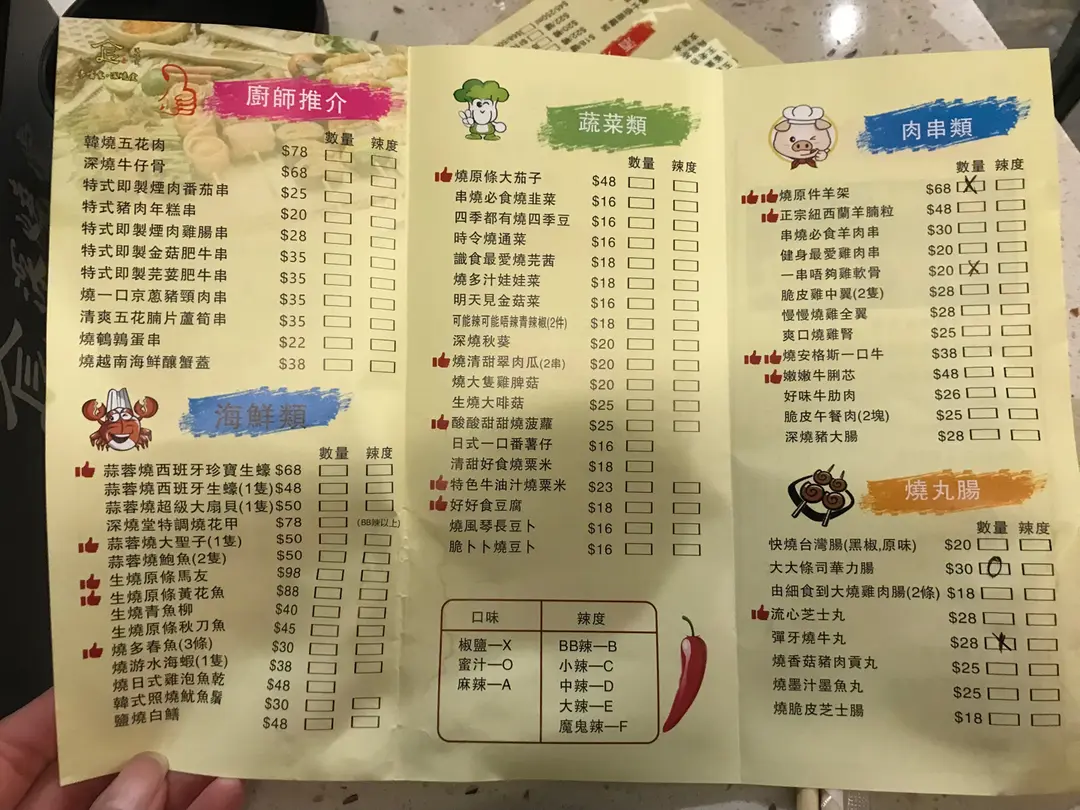 廚師推介
數量 辣度
韓燒五花肉 $78
深燒牛仔骨 $68
特式即製煙肉番茄串 $25
特式豬肉年糕串 $20
特式即製煙肉雞腸串 $28
特式即製金菇肥牛串 $35
特式即製芫荽肥牛串 $35
燒一口京蔥豬頸肉串 $35
清爽五花腩片蘆筍串 $35
燒鵪鶉蛋串 $22
燒越南海鮮釀蟹蓋 $38
海鮮類
數量 辣度
蒜蓉燒西班牙珍寶生蠔 $68
蒜蓉燒西班牙生蠔(1隻) $48
蒜蓉燒超級大扇貝(1隻) $50
深燒堂特調燒花甲 $78 (BB辣以上)
蒜蓉燒大聖子(1隻) $50
蒜蓉燒鮑魚(2隻) $50
生燒原條馬友 $98
生燒原條黃花魚 $88
生燒青魚柳 $40
生燒原條秋刀魚 $45
燒多春魚(3條) $30
燒游水海蝦(1隻) $38
燒日式雞泡魚乾 $48
韓式照燒魷魚鬚 $30
鹽燒白鱔 $48
蔬菜類
數量 辣度
燒原條大茄子 $48
串燒必食燒韭菜 $16
四季都有燒四季豆 $16
時令燒通菜 $16
識食最愛燒芫茜 $18
燒多汁娃娃菜 $18
明天見金菇菜 $16
可能辣可能唔辣青辣椒(2件) $18
深燒秋葵 $20
燒清甜翠肉瓜(2串) $20
燒大隻雞脾菇 $20
生燒大啡菇 $25
酸酸甜甜燒菠蘿 $25
日式一口番薯仔 $16
清甜好食燒粟米 $18
特色牛油汁燒粟米 $23
好好食豆腐 $18
燒風琴長豆卜 $16
脆卜卜燒豆卜 $16
口味 辣度
椒鹽—X BB辣—B
蜜汁—O 小辣—C
麻辣—A 中辣—D
大辣—E
魔鬼辣—F
肉串類
數量 辣度
燒原件羊架 $68 X
正宗紐西蘭羊腩粒 $48
串燒必食羊肉串 $30
健身最愛雞肉串 $20
一串唔夠雞軟骨 $20 X
脆皮雞中翼(2隻) $28
慢慢燒雞全翼 $28
爽口燒雞腎 $25
燒安格斯一口牛 $38
嫩嫩牛脷芯 $48
好味牛肋肉 $26
脆皮午餐肉(2塊) $25
深燒豬大腸 $28
燒丸腸
數量 辣度
快燒台灣腸(黑椒,原味) $20
大大條司華力腸 $30 O
由細食到大燒雞肉腸(2條) $18
流心芝士丸 $28
彈牙燒牛丸 $28 X
燒香菇豬肉貢丸 $25
燒墨汁墨魚丸 $25
燒脆皮芝士腸 $18